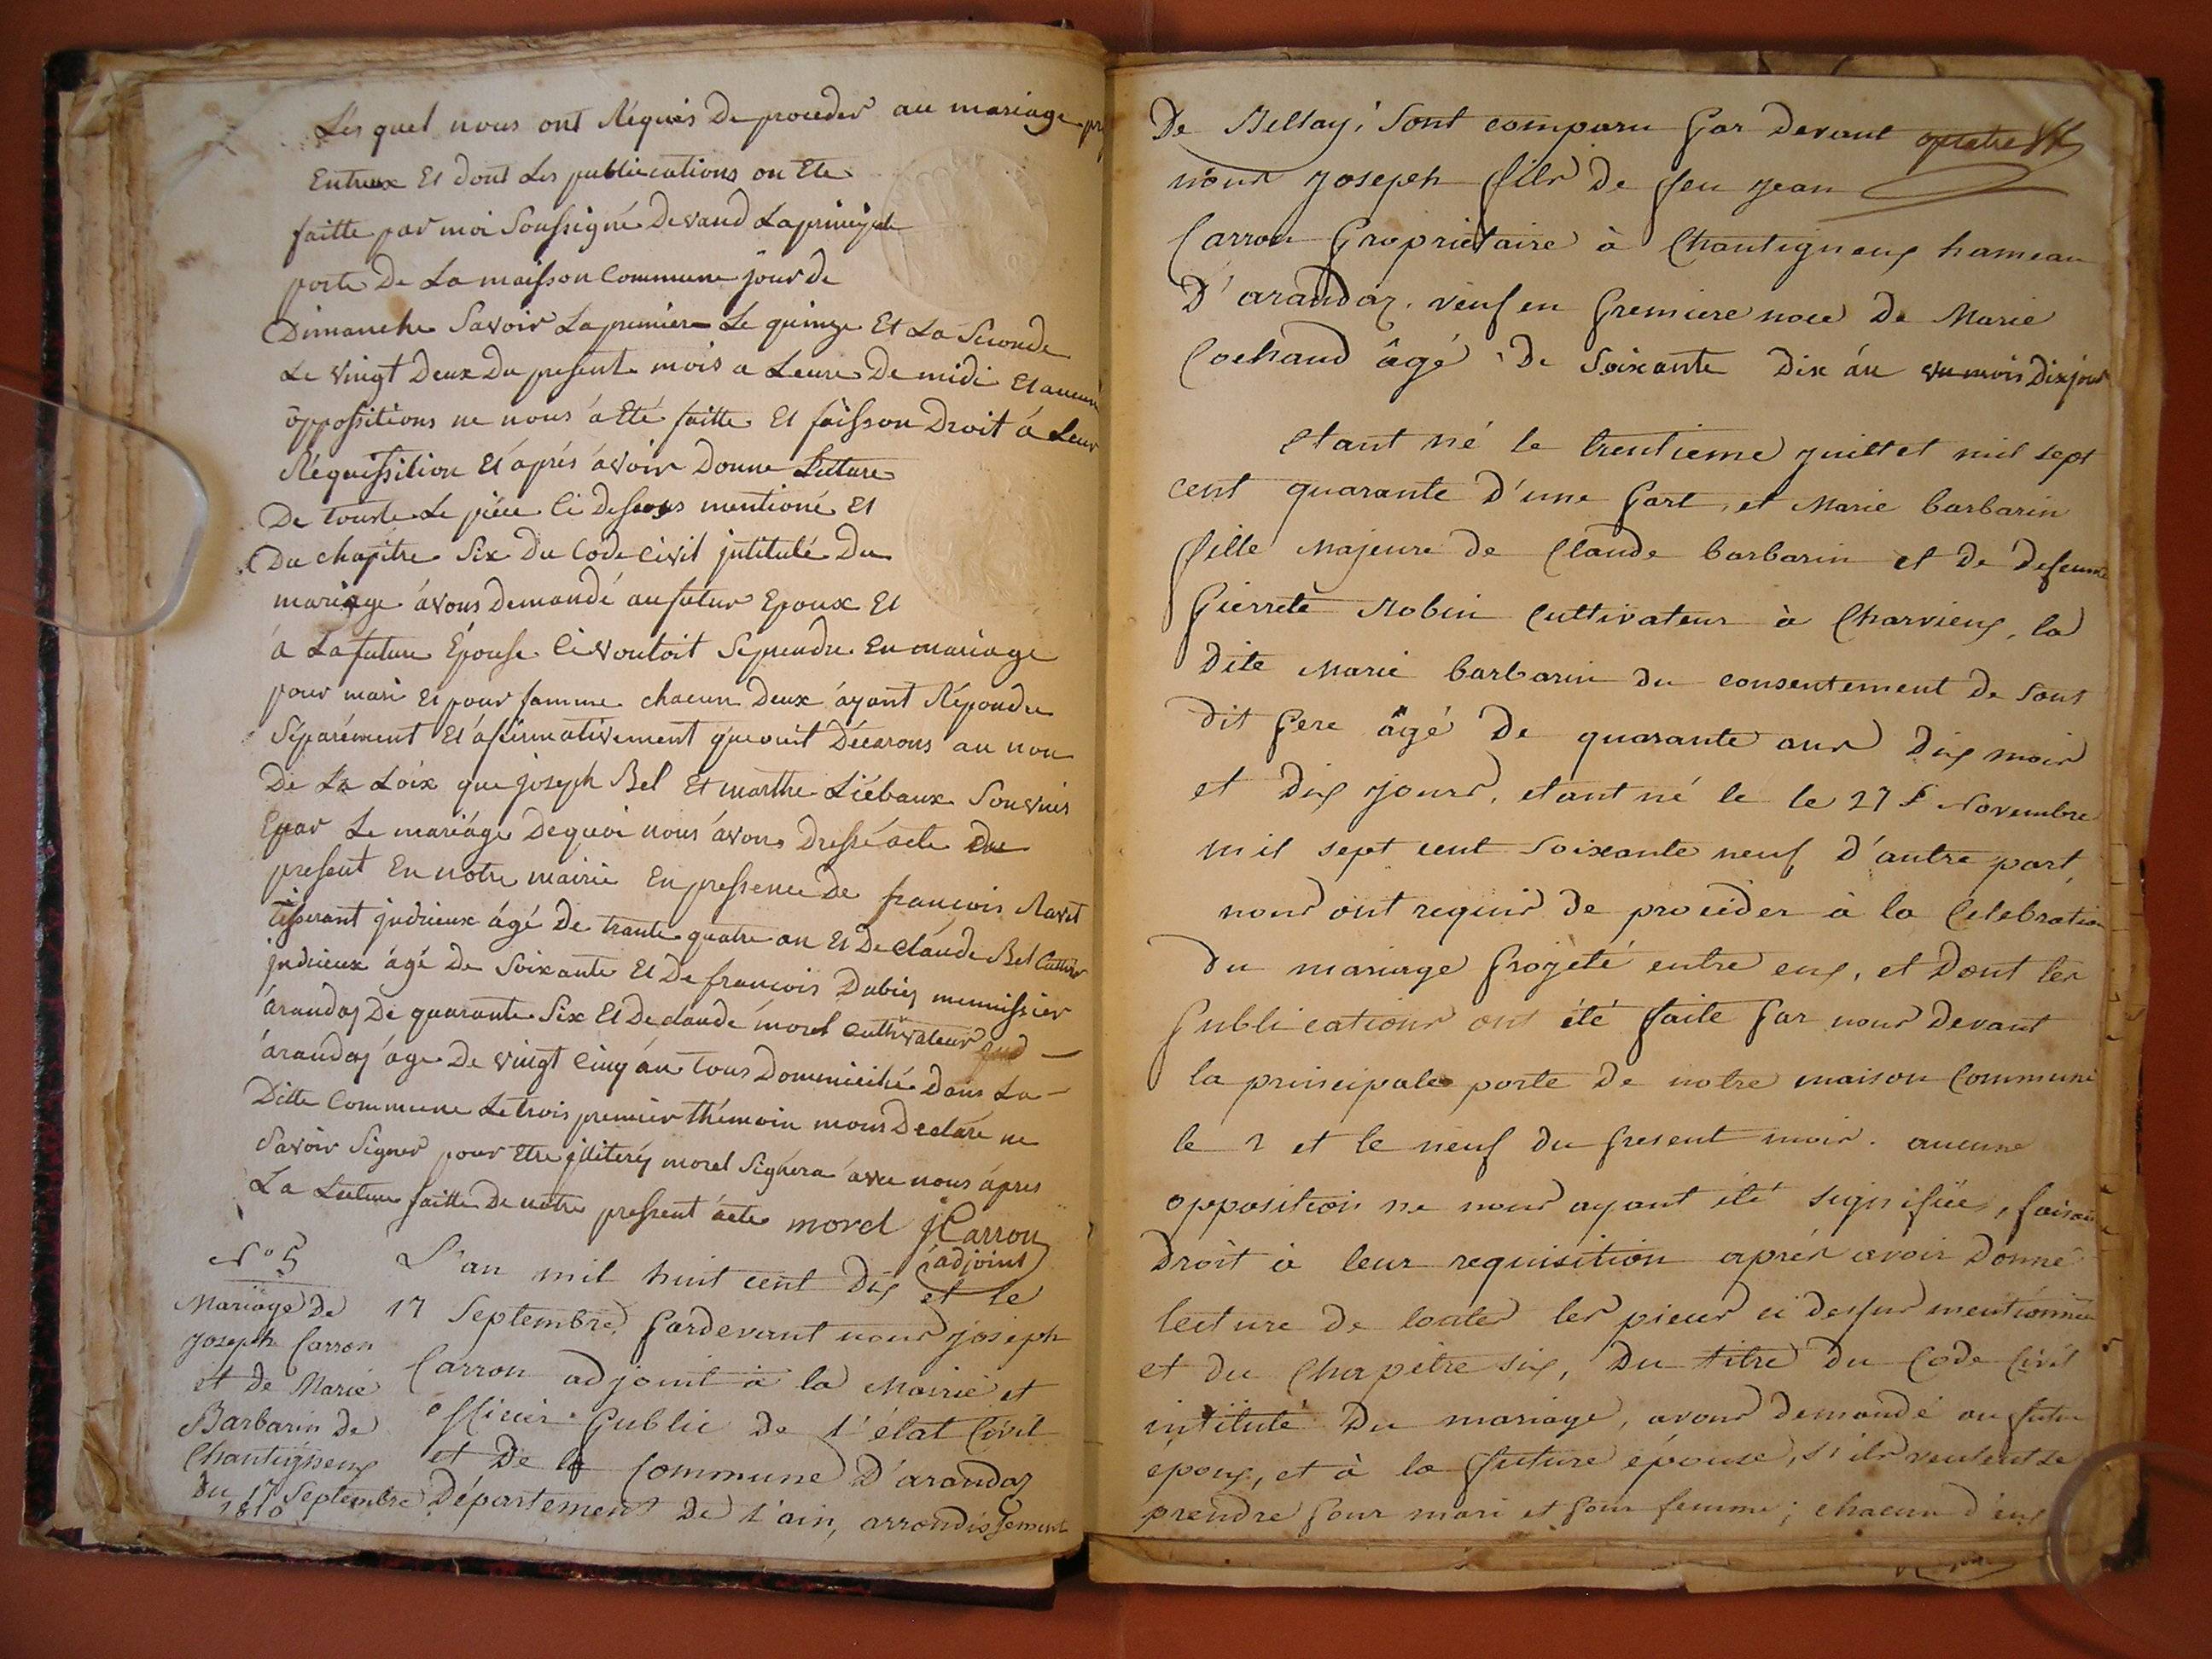 Les quel nous ont Réquis De proceder au mariage
Entreux Et dont Les publications on Ete
faitte par moi Soussigné Devand Laprincipale
porte De La maisson Commune jour de
Dimanche Savoir La premiere Le quinze Et La Seconde
Le vingt Deux Du present mois a Leure De midi Et aucune
oppositions ne nous á Eté faitte Et faisson Droit á Leur
Réquissition Et aprés ávoir Donne Luture
De touste Le piéce Ci Dessous mentioné Et
Du chapitre Six Du Code Civil jntitulé Du
mariage ávons Demandé aufutur Epoux Et
á Lafuture Épouse Ci voutoit Seprendre En mariage
pour mari Et pour famme chacun Deux áyant Répondu
Séparément Et áfirmativement Décarons au non
De La Loix que joseph Bel Et marthe Liébaux Son unis
Epar Le mariáge Dequoi nous ávons Dressé acte
présent En notre mairie En pressence De françois Ravet
tisserant judrieux ágé De trante quatre an Et De Claúde Bel Cultiv
judrieux ágé De Soixante Et De françois Dubiez mennissier
árandaz De quarante Six Et De claude morel Cultivateur
árandaz áge De vingt Cinq án tous Dommicihé Dans La
Ditte Commune Le trois premier thémoin mons Declare ne
Savoir Signer pour Etre jlliteréz morel Signera ávec nous ápres
La Lecture faitte De notre pressent ácte morel JCarron
adjoint
N° 5
Mariage De
Joseph Carron
et de Marie
Barbarin De
Chantigneux
Du 17 Septembre
1810
L'an mil huit cent Dix et le
17 Septembre, Pardevant nous joseph
Carron adjoint à la Mairie et
officier Public De l'état Civil
et De la Commune D'arandaz
Département De l'ain, arrondissement
De Bellay; Sont comparu Par Devant
nous Joseph fils De feu Jean
Carron Propriétaire à Chantigneux hameau
D'arandaz, veuf en Premiere noce De Marie
Cochaud âgé De Soixante Dix án un mois Dix jour
Etant né le trentieme juillet mil sept
cent quarante D'une Part, et Marie barbarin
fille Majeure De Claude barbarin et De defeunte
Pierrete Robin Cultivateur à Charvieux, la
Dite Marie barbarin Du consentement De Sont
Dit Pere âgé De quarante ans Dix mois
et Dix jours, etant né le le 27 Novembre
mil sept cent Soixante neuf D'autre part,
nous ont requis De procéder à la Celebration
Du mariage Projeté entre eux, et Dont les
Publications ont été faite Par nous Devant
la principale porte De notre maison Commune
le 2 et le neuf Du Present mois. aucune
opposition ne nous ayant été signifiée, faisant
Droit à leur requisition aprés avoir Donné
lecture De toutes les pieces ci Dessus mentionnée
et Du Chapitre six, Du titre Du Code Civil
intitulé Du mariage, avons Demandé au futur
époux, et à la future épouse, s'ils veulent se
prendre Pour mari et Pour femme; chacun d'eux